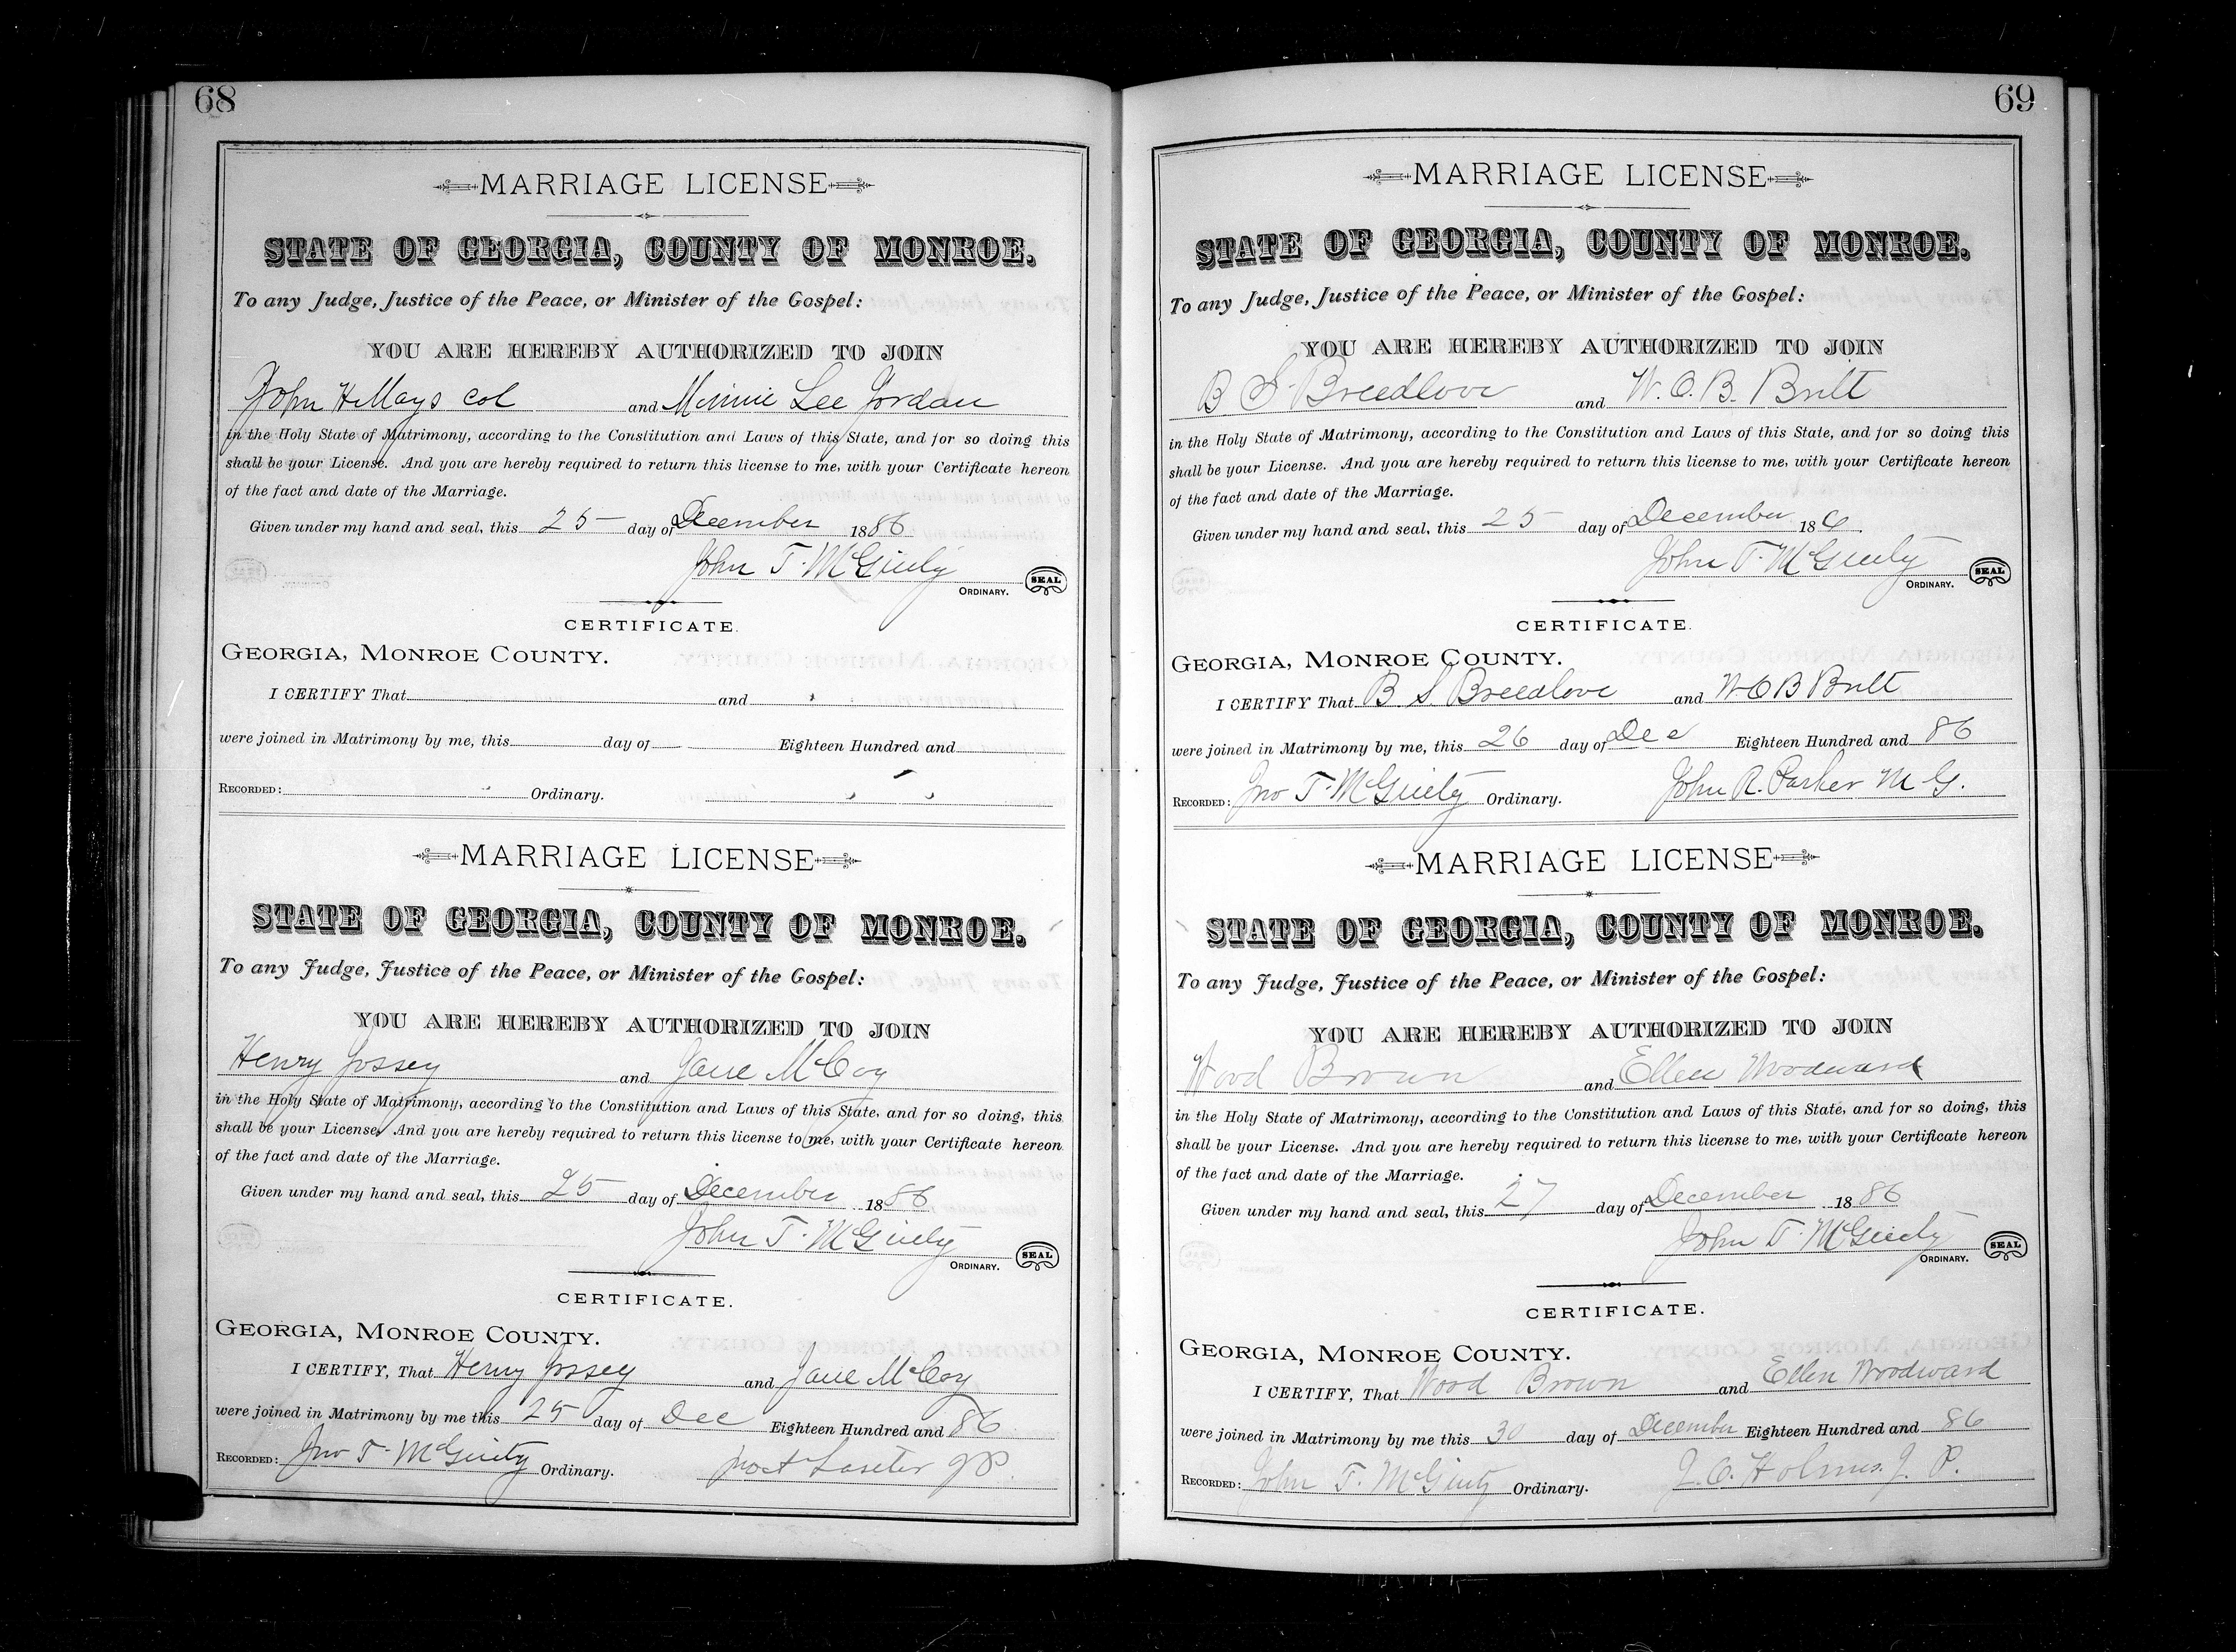 68
MARRIAGE LICENSE
STATE OF GEORGIA, COUNTY OF MONROE.
To any Judge, Justice of the Peace, or Minister of the Gospel:
YOU ARE HEREBY AUTHORIZED TO JOIN
John H Mays col and Minnie Lee Jordan
in the Holy State of Matrimony, according to the Constitution and Laws of this State, and for so doing this
shall be your License. And you are hereby required to return this license to me, with your Certificate hereon
of the fact and date of the Marriage.
Given under my hand and seal, this 25 day of December 1886
John T. McGinty
ORDINARY. SEAL
CERTIFICATE.
GEORGIA, MONROE COUNTY.
I CERTIFY That and
were joined in Matrimony by me, this day of Eighteen Hundred and
RECORDED: Ordinary.
MARRIAGE LICENSE
STATE OF GEORGIA, COUNTY OF MONROE.
To any Judge, Justice of the Peace, or Minister of the Gospel:
YOU ARE HEREBY AUTHORIZED TO JOIN
Henry Jossey and Jane McCoy
in the Holy State of Matrimony, according to the Constitution and Laws of this State, and for so doing, this
shall be your License. And you are hereby required to return this license to me, with your Certificate hereon
of the fact and date of the Marriage.
Given under my hand and seal, this 25 day of December 1886
John T. McGinty
ORDINARY. SEAL
CERTIFICATE.
GEORGIA, MONROE COUNTY.
I CERTIFY, That Henry Jossey and Jane McCoy
were joined in Matrimony by me this 25 day of Dec Eighteen Hundred and 86
RECORDED: Jno T. McGinty Ordinary. Laseter JP.
69
MARRIAGE LICENSE
STATE OF GEORGIA, COUNTY OF MONROE.
To any Judge, Justice of the Peace, or Minister of the Gospel:
YOU ARE HEREBY AUTHORIZED TO JOIN
B S. Breedlove and W. O. B. Britt
in the Holy State of Matrimony, according to the Constitution and Laws of this State, and for so doing this
shall be your License. And you are hereby required to return this license to me, with your Certificate hereon
of the fact and date of the Marriage.
Given under my hand and seal, this 25 day of December 186.
John T. McGinty
ORDINARY. SEAL
CERTIFICATE.
GEORGIA, MONROE COUNTY.
I CERTIFY That B. S. Breedlove and W O B Britt
were joined in Matrimony by me, this 26 day of Dec Eighteen Hundred and 86
RECORDED: Jno T. McGinty Ordinary. John R. Parker M G.
MARRIAGE LICENSE
STATE OF GEORGIA, COUNTY OF MONROE.
To any Judge, Justice of the Peace, or Minister of the Gospel:
YOU ARE HEREBY AUTHORIZED TO JOIN
Wood Brown and Ellen Woodward
in the Holy State of Matrimony, according to the Constitution and Laws of this State, and for so doing, this
shall be your License. And you are hereby required to return this license to me, with your Certificate hereon
of the fact and date of the Marriage.
Given under my hand and seal, this 27 day of December 1886
John T. McGinty
ORDINARY. SEAL
CERTIFICATE.
GEORGIA, MONROE COUNTY.
I CERTIFY, That Wood Brown and Ellen Woodward
were joined in Matrimony by me this 30 day of December Eighteen Hundred and 86
RECORDED: John T. McGinty Ordinary. J. O. Holmes. J. P.